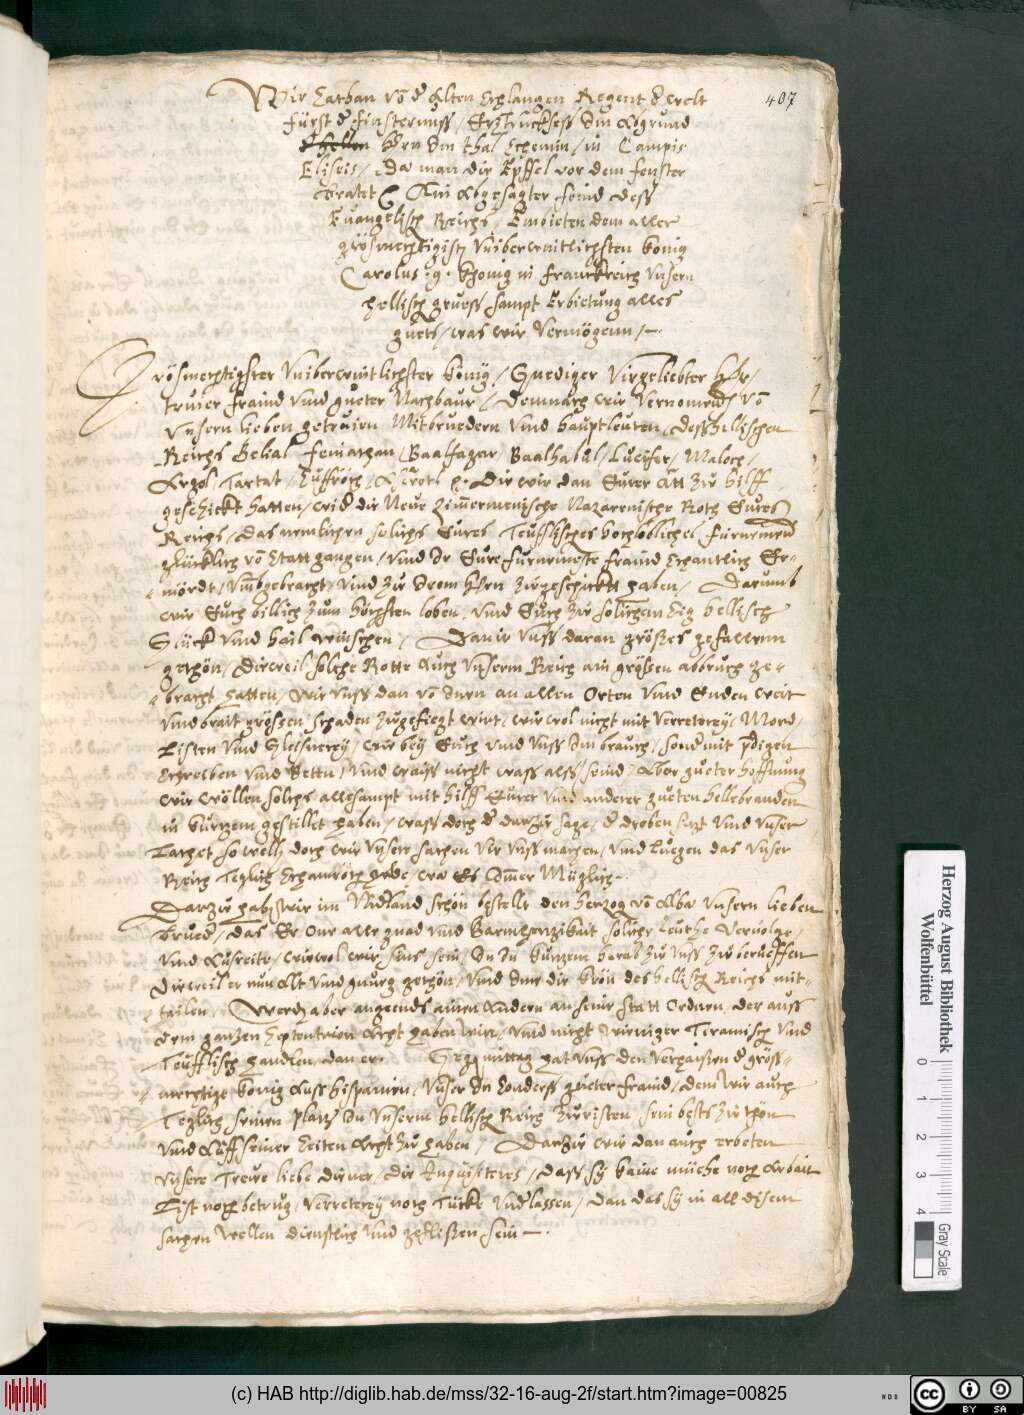 407
Wir Sathan vō d Alten Schlangen Regent d welt
fürst d finsternuss / Ertztruckhsess Im Abgrund
Im thal in Campis
Eliseis / Da man die Epffel vor dem fenster
bratet Ain Abgesagter feind dess
Euangelisch Reichs / Embieten dem aller
grösmechtigist Vniberwintlichsten konig
Carolus .9. Khonig in Franckreich Vnsern
hellisch gruess sampt Erbietung alles
guets / was wir Vermögenn / –.
Grösmechtigster Vniberwintlichster König / Gnediger Virgeliebter Her /
truier fraind vnd gueter Nachbaur / Demnach wir Vernomen vō
Vnsern lieben getruien Mitbruedern vnd hauptleuten / dess hellischen
Reichs Belial / Baalhabul / Lucifer / Maloch /
Die wir dan Eurer zu hilff
geschickt hatten / wid die Neue Nazarenische Roth Eures
Reichs / das nemlichen solichs Eures Teufflisches hochloblichs
glücklich vō Statt gangen / vnd Ir Eure furnemeste fraind Er-
mördt / vmbgebracht / vnd zu Irem Hern zugeschickt haben / Darumb
wir Euch billich zum höchsten loben / vnd Euch zu solichem Sig hellisch
Glück vnd hail winschen / Dan ir vnss daran grosses gefallenn
gethön / dieweil solche Rotte auch vnserm Reich ain grossen abbruch ge-
bracht hatten / wir vnss dan vō Inen an allen Orten vnd Enden weit
vnd brait grossen schaden zugefiegt wirt / wiewol nicht mit Verreterey / Mord /
Listen vnd Gleisnerey / wie bey Euch vnd vnss Im brauch / sond mit pdigen
Schreiben vnd Betten / vnd waiss nicht wass alss seind / Aber gueter hoffnung
wir wöllen solchs allesampt mit hilff Eurer vnd anderer gueten hellebranden
in kurtzem gestillet haben / wass doch d darzu sage / d droben sitzt vnd vnser
Lachet so well doch wir vnsere sachen vir vnss machen / vnd luegen das vnser
Reich Teglich / wa Es Imer Müglich.
Darzu hab wir im Nidland schön bestellt den hertzog vō Alba vnsern lieben
brued / das Er One alle gnad vnd Barmhertzikait soliche Leuthe Veruolge /
vnd Aussreite / wiewol wir sins sein / In In kurtzem herab zu vnss zu berueffen
Dieweil er nun Alt vnd gnueg gethön / vnd Ime die krön des hellisch Reichs mit-
tailen / Werd aber angends ainen Andern an seine Statt Ordnen, der auff
dem gantzen Septentrion Acht haben wirt / vnd nicht weniger Tiranisch vnd
Teufflisch handlen, dan er. hat vnss den Verhaissen d gröss-
mechtige könig Auss Hispanien / vnser In Sonders gueter fraind / dem wir auch
Teglich seinen platz Im vnserm hellisch Reich zuristen / sein bests zu thön
vnd Auff seiner Seiten Acht zu haben / Darzu wir dan auch erbeten
vnsere Treue liebe diener / die Inquisiteres / dass sy kaine müehe noch Arbait
List noch betrug / Verreterey noch Tücke vnd lassen / dan das sy in all disem
sachen wellen dienstlich vnd geflissen sein –.
Herzog August Bibliothek
Wolfenbüttel
0 1 2 3 4
Gray Scale
(c) HAB http://diglib.hab.de/mss/32-16-aug-2f/start.htm?image=00825
cc BY SA